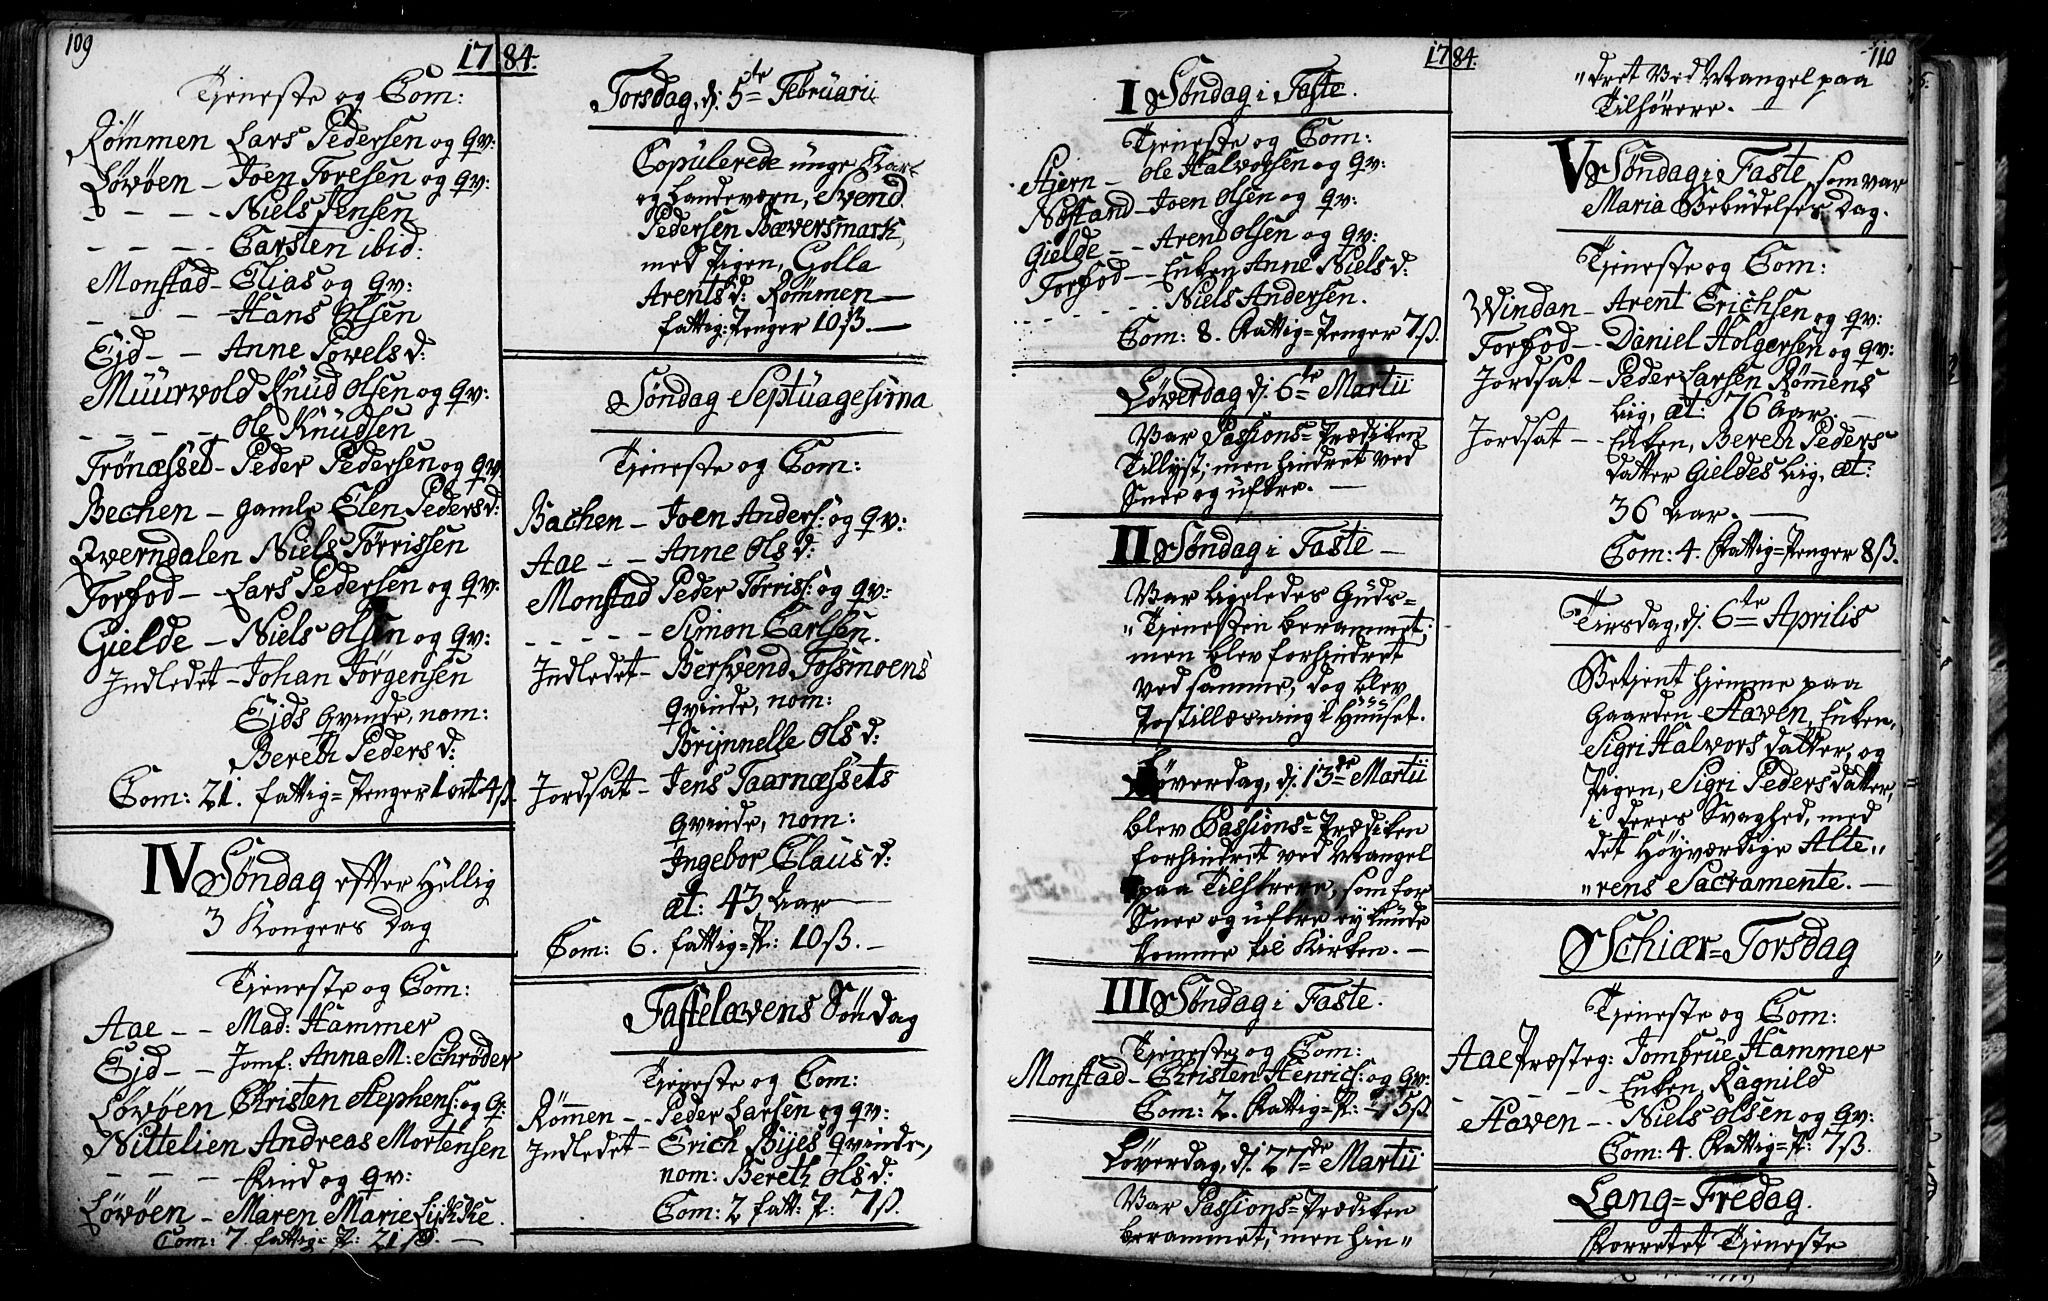 109
1784.
Tieneste og Com:
Rømmen Lars Pedersen og Qv:
Løvøen – Joen Toresen og Qv:
– – – – Niels Jensen
– – – – Carsten ibid:
Monstad – Elias og Qv:
– – – – Hans Olsen
Ejd – – Anne Povelsd:
Muurvold Knud Olsen og Qv:
– – – – – Ole Knudsen
Trønæsset – Peder Pedersen og Qv
Bechen – gamle Elen Pedersd:
Qverndalen Niels Tørrissen
Forfod – Lars Pedersen og Qv:
Gielde – Niels Olsen og Qv:
Indledet – Johan Jørgensen
Ejds Qvinde, nom:
Bereth Pedersd:
Com: 21. fattig=Penger 1 ort 4 ß.
IV Søndag efter Hellig
3 Kongers Dag
Tieneste og Com:
Aae – – Mad: Hammer
Ejd – – Jomf: Anna M: Schrøder
Løvøen Christen Stephens: og Q:
Nittelien Andreas Mortensen
– – – – Kind og Qv:
Løvøen – Maren Marie Lydkke.
Com: 7. fattig=P: 21 ß. –
Torsdag, d: 5te Februarii
Copulerede unge Kar-
og Landeværn, Svend
Pedersen Bæversmark,
med Pigen, Golla
Arentsd: Rømmen –
fattig=Penger 10 ß. –
Søndag Septuagesima
Tieneste og Com:
Bachen – Joen Anders: og Qv:
Aae – – Anne Olsd:
Monstad Peder Tørriss: og Qv:
– – – – – Simon Carlsen.
Indledet – Bersvend Fossmoens
Qvinde, nom:
Brynnelle Olsd:
Jordsat – Jens Taarnæssets
Qvinde, nom:
Ingebor Clausd:
æt: 43 Aar –
Com: 6. fattig=P: 10 ß. –
Fastelavens Søndag
Tieneste og Com:
Rømen – Peder Larsen og Qv:
Indledet – Erich Byes Qvinde,
nom: Bereth Olsd:
Com: 2 fatt: P: 7 ß.
1784.
110
I Søndag i Faste.
Tieneste og Com:
Stiern – Ole Halvorsen og Qv:
Nostand – Joen Olsen og Qv:
Gielde – – Arent Olsen og Qv:
Forfod – – Enken Anne Nielsd:
– – – – – Niels Andersen.
Com: 8. Fattig=Penger 7 ß.
Løverdag d: 6te Martii
Var Passions=Prædiken
Tillyst; men hindret ved
Snee og uføre. –
II Søndag i Faste –
Var ligeledes Guds=
"Tienesten berammet;
men blev forhindret
ved samme, dog blev
Postillæsning i Huuset.
Løverdag, d: 13de Martii
blev Passions=Prædiken
forhindret ved Mangel
paa Tilhørere, som for
Snee og uføre ey kunde
komme til Kirken. –
III Søndag i Faste.
Tieneste og Com:
Monstad – Christen Henrichs: og Qv:
Com: 2. Fattig=P: – 5 ß
Løverdag, d: 27de Martii
Var Passions=Prædiken
berammet; men hin"
"dret ved Mangel paa
Tilhørere. –
V Søndag i Faste, som var
Maria Bebudelses Dag.
Tieneste og Com:
Windan – Arent Erichsen og Qv:
Forfod – Daniel Holgersen og Qv:
Jordsat – Peder Larsen Rømmens
Lig, æt: 76 Aar. –
Jordsat – Enken, Bereth Peders
datter Gieldes Lig, æt:
36 Aar. –
Com: 4. Fattig=Penger 8 ß.
Tirsdag, d: 6te Aprilis
Betient hiemme paa
Gaarden Aaven, Enken,
Sigri Halvorsdatter, og
Pigen, Sigri Pedersdatter,
i deres Svaghed, med
det Høyværdige Alte"
"rens Sacramente. –
Schiær=Torsdag
Tieneste og Com:
Aae Præsteg: Jombrue Hammer
– – – – – Enken, Ragnild
Aaven – – Niels Olsen og Qv:
Com: 4. Fattig=P: 7 ß.
Lang=Fredag.
Forrettet Tieneste